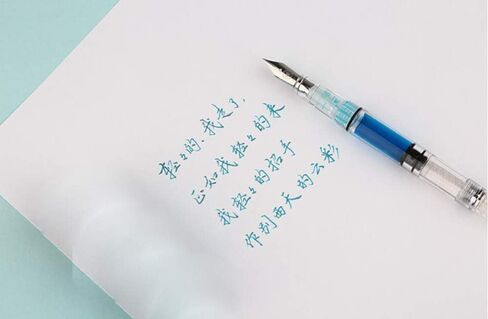 轻々的.我走了,
正如我轻々的来
我轻々的招手
作别西天的云彩